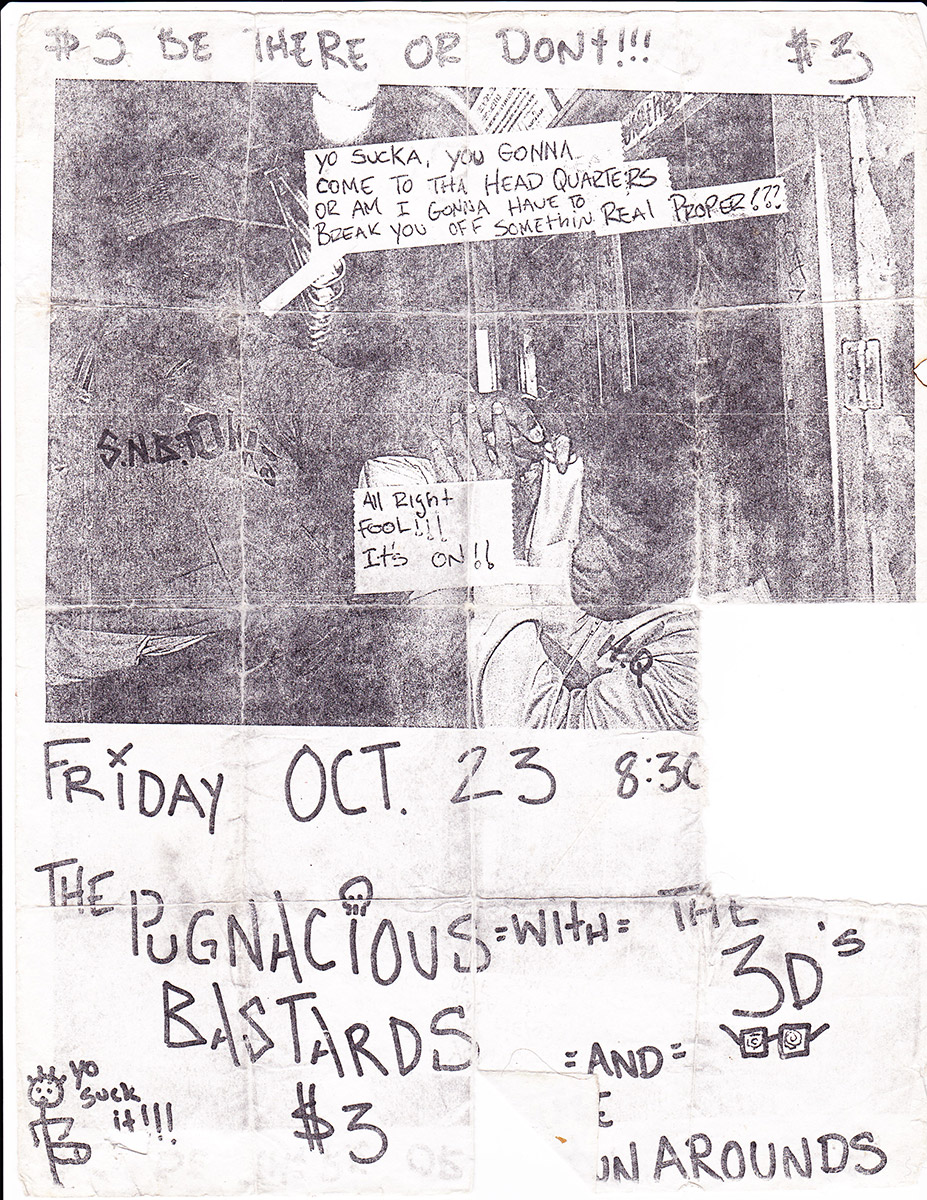 $3 BE THERE OR DONT!!! $3
YO SUCKA, YOU GONNA
COME TO THA HEAD QUARTERS
OR AM I GONNA HAVE TO
BREAK YOU OFF SOMETHIN REAL PROPER!??
S.N.B.T.
All Right
FOOL!!!
It's ON!!
FRiDAY OCT. 23 8:30
THE PUGNACiOUS =WITH= THE
BASTARDS 3D's
=AND=
E
UNAROUNDS
yo
suck
it!!!
$3